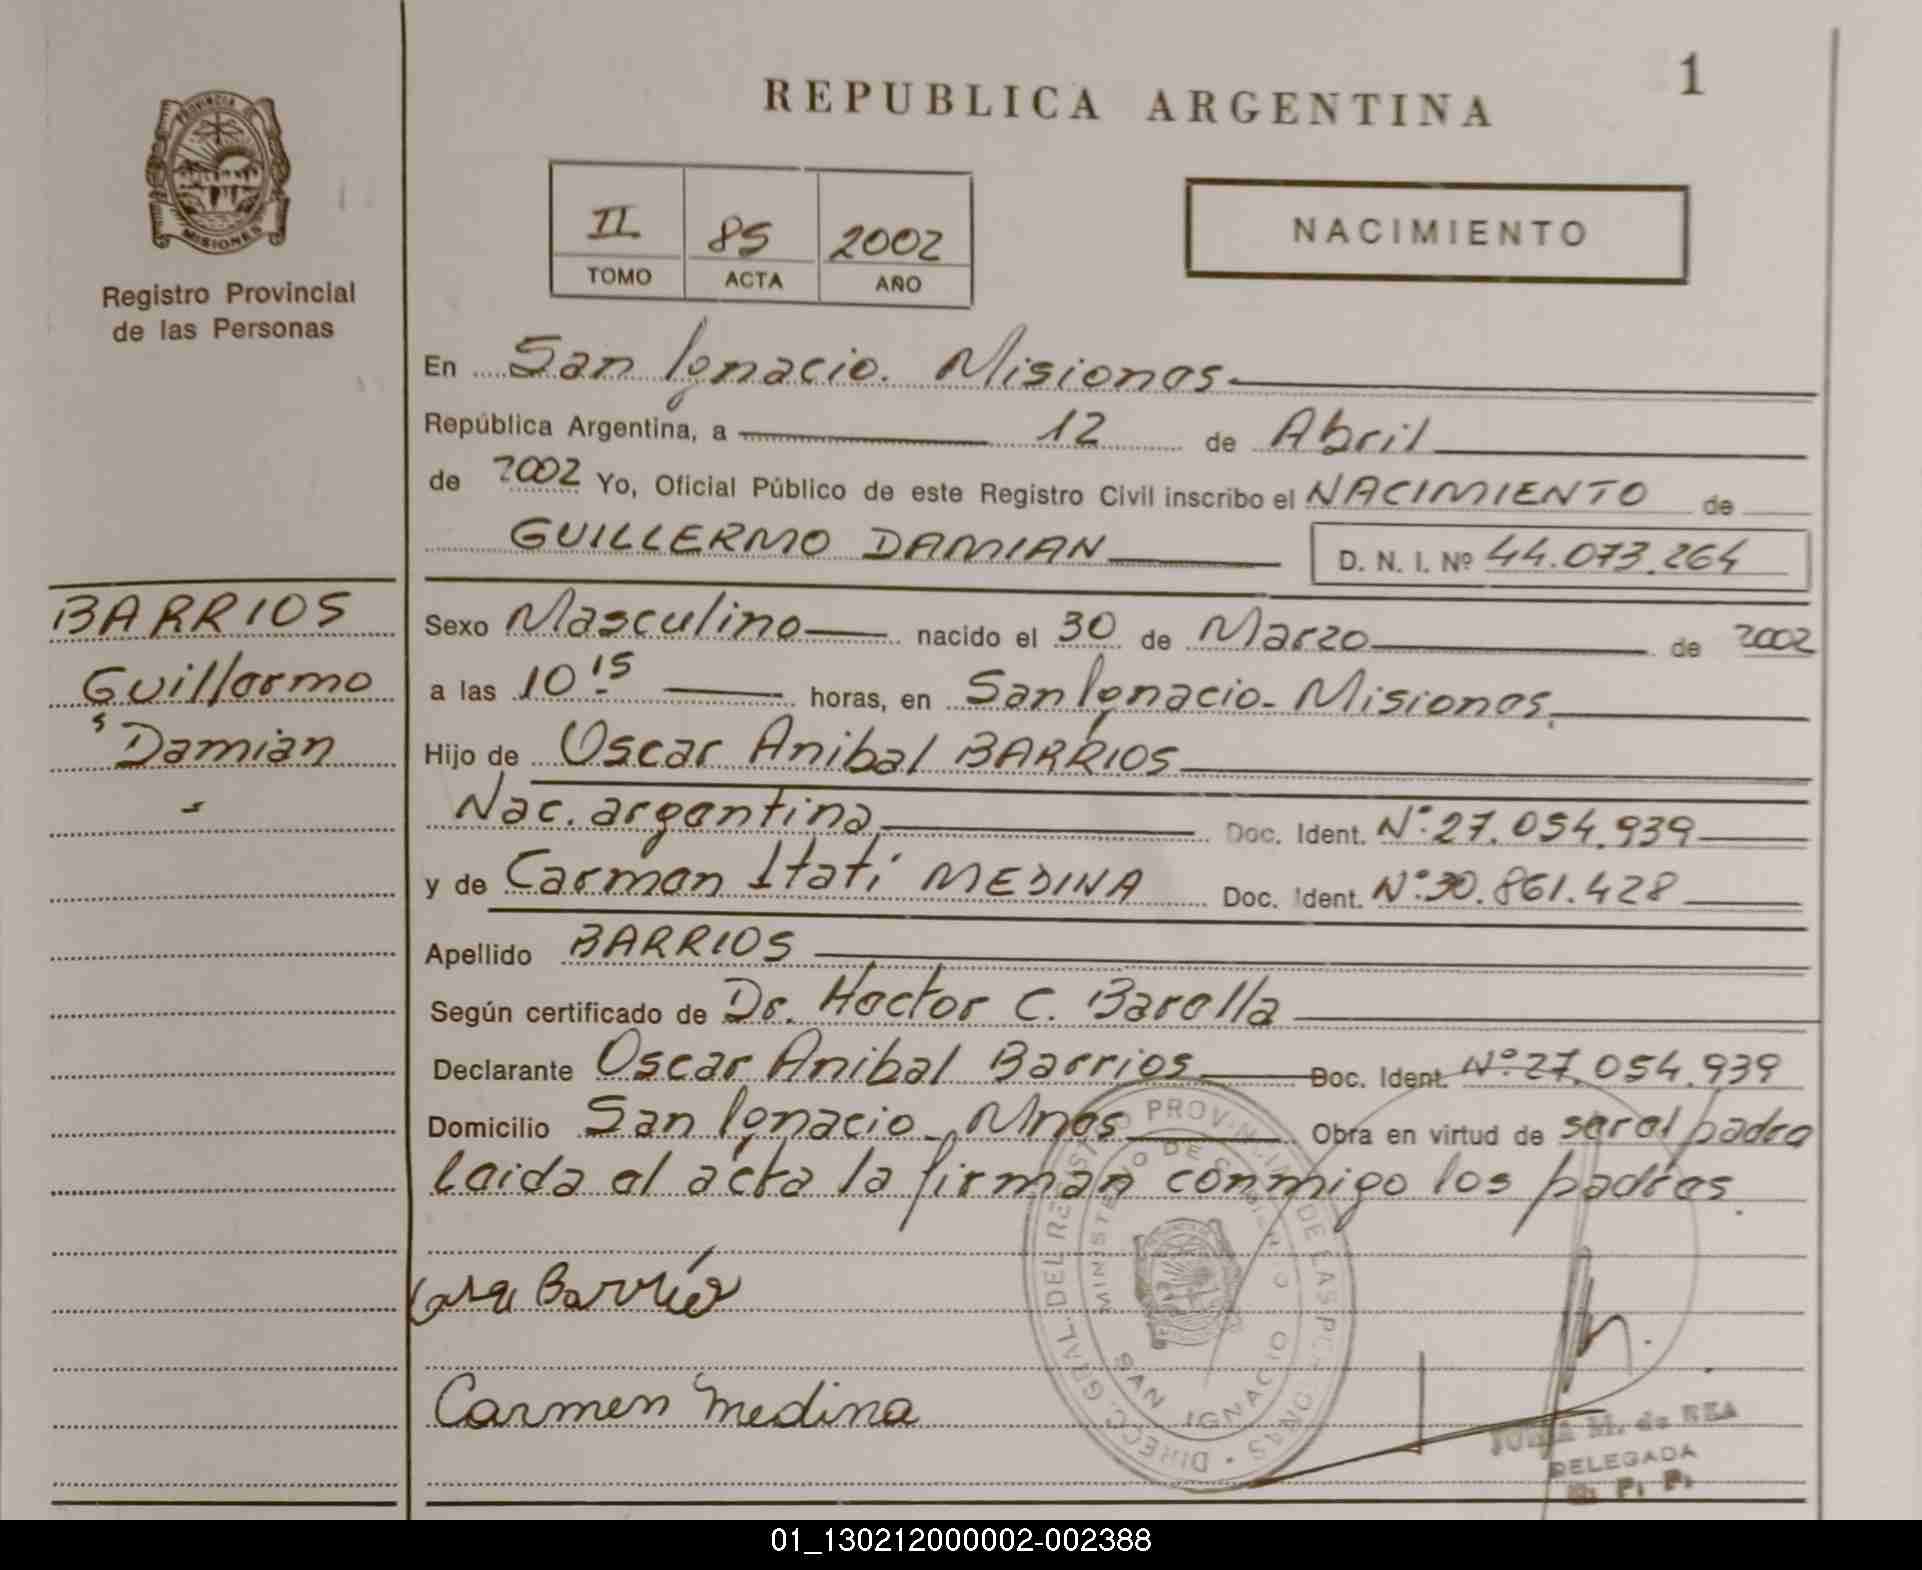 1
REPUBLICA ARGENTINA
PROVINCIA DE
MISIONES
Registro Provincial
de las Personas
II 85 2002
TOMO ACTA AÑO
NACIMIENTO
En San Ignacio. Misiones
República Argentina, a 12 de Abril
de 2002 Yo, Oficial Público de este Registro Civil inscribo el NACIMIENTO de
GUILLERMO DAMIAN D. N. I. Nº 44.073.264
BARRIOS
Guillermo
Damian
Sexo Masculino nacido el 30 de Marzo de 2002
a las 10 15 horas, en San Ignacio - Misiones
Hijo de Oscar Anibal BARRIOS
Nac. argentina Doc. Ident. Nº 27.054.939
y de Carmen Itatí MEDINA Doc. Ident. Nº 30.861.428
Apellido BARRIOS
Según certificado de Dr. Hector C. Barella
Declarante Oscar Anibal Barrios Doc. Ident. Nº 27.054.939
Domicilio San Ignacio - Mnes Obra en virtud de ser el padre
Leida el acta la firman conmigo los padres.
Barrios
Carmen Medina
DIREC. GRAL. DEL REGISTRO PROVINCIAL DE LAS PERSONAS
MINISTERIO DE GOBIERNO
SAN IGNACIO
M. de REA
DELEGADA
R. P. P.
01_130212000002-002388